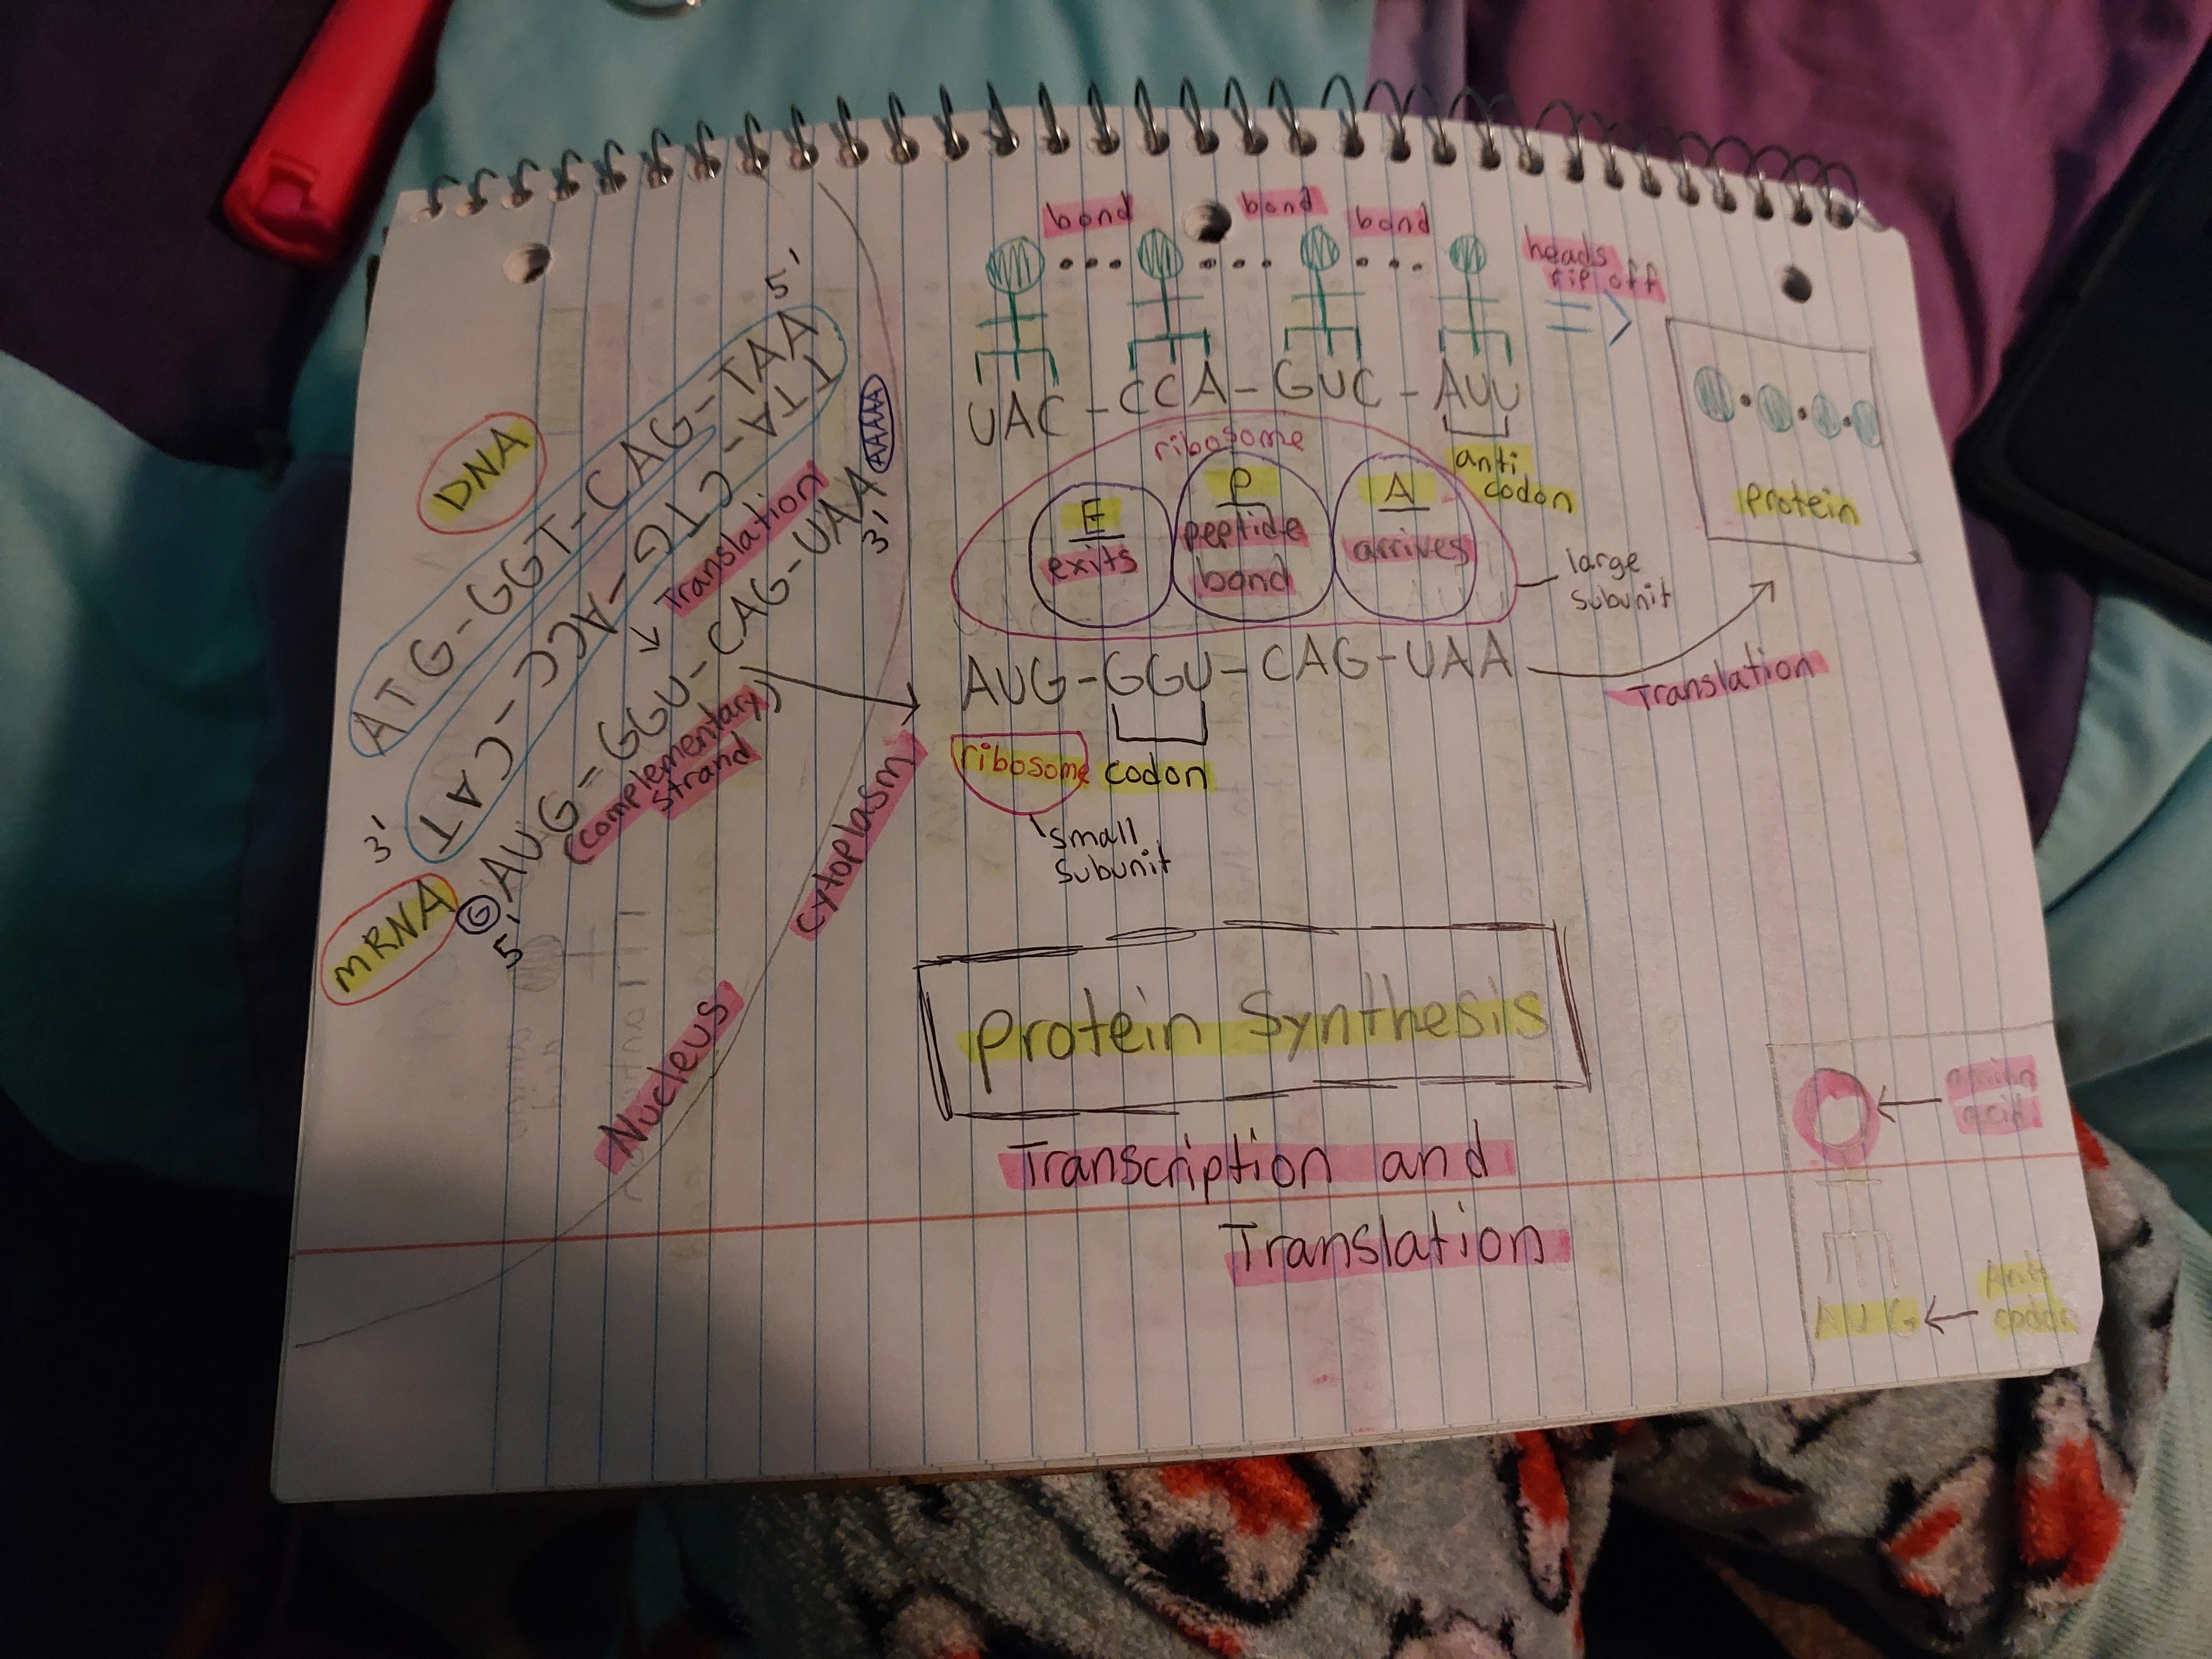 DNA
5'
ATG-GGT-CAG-TAA
TAC-CCA-GTC-ATT
3'
↓ Translation
mRNA
G AUG-GGU-CAG-UAA AAAAA
5'
3'
(complementary)
strand
Nucleus
cytoplasm
bond bond bond
heads
rip off
=>
UAC-CCA-GUC-AUU
anti
codon
protein
ribosome
E
exits
P
peptide
bond
A
arrives
large
subunit
AUG-GGU-CAG-UAA
Translation
ribosome codon
small
subunit
protein Synthesis
Transcription and
Translation
amino
acid
AUG
Anti
codon